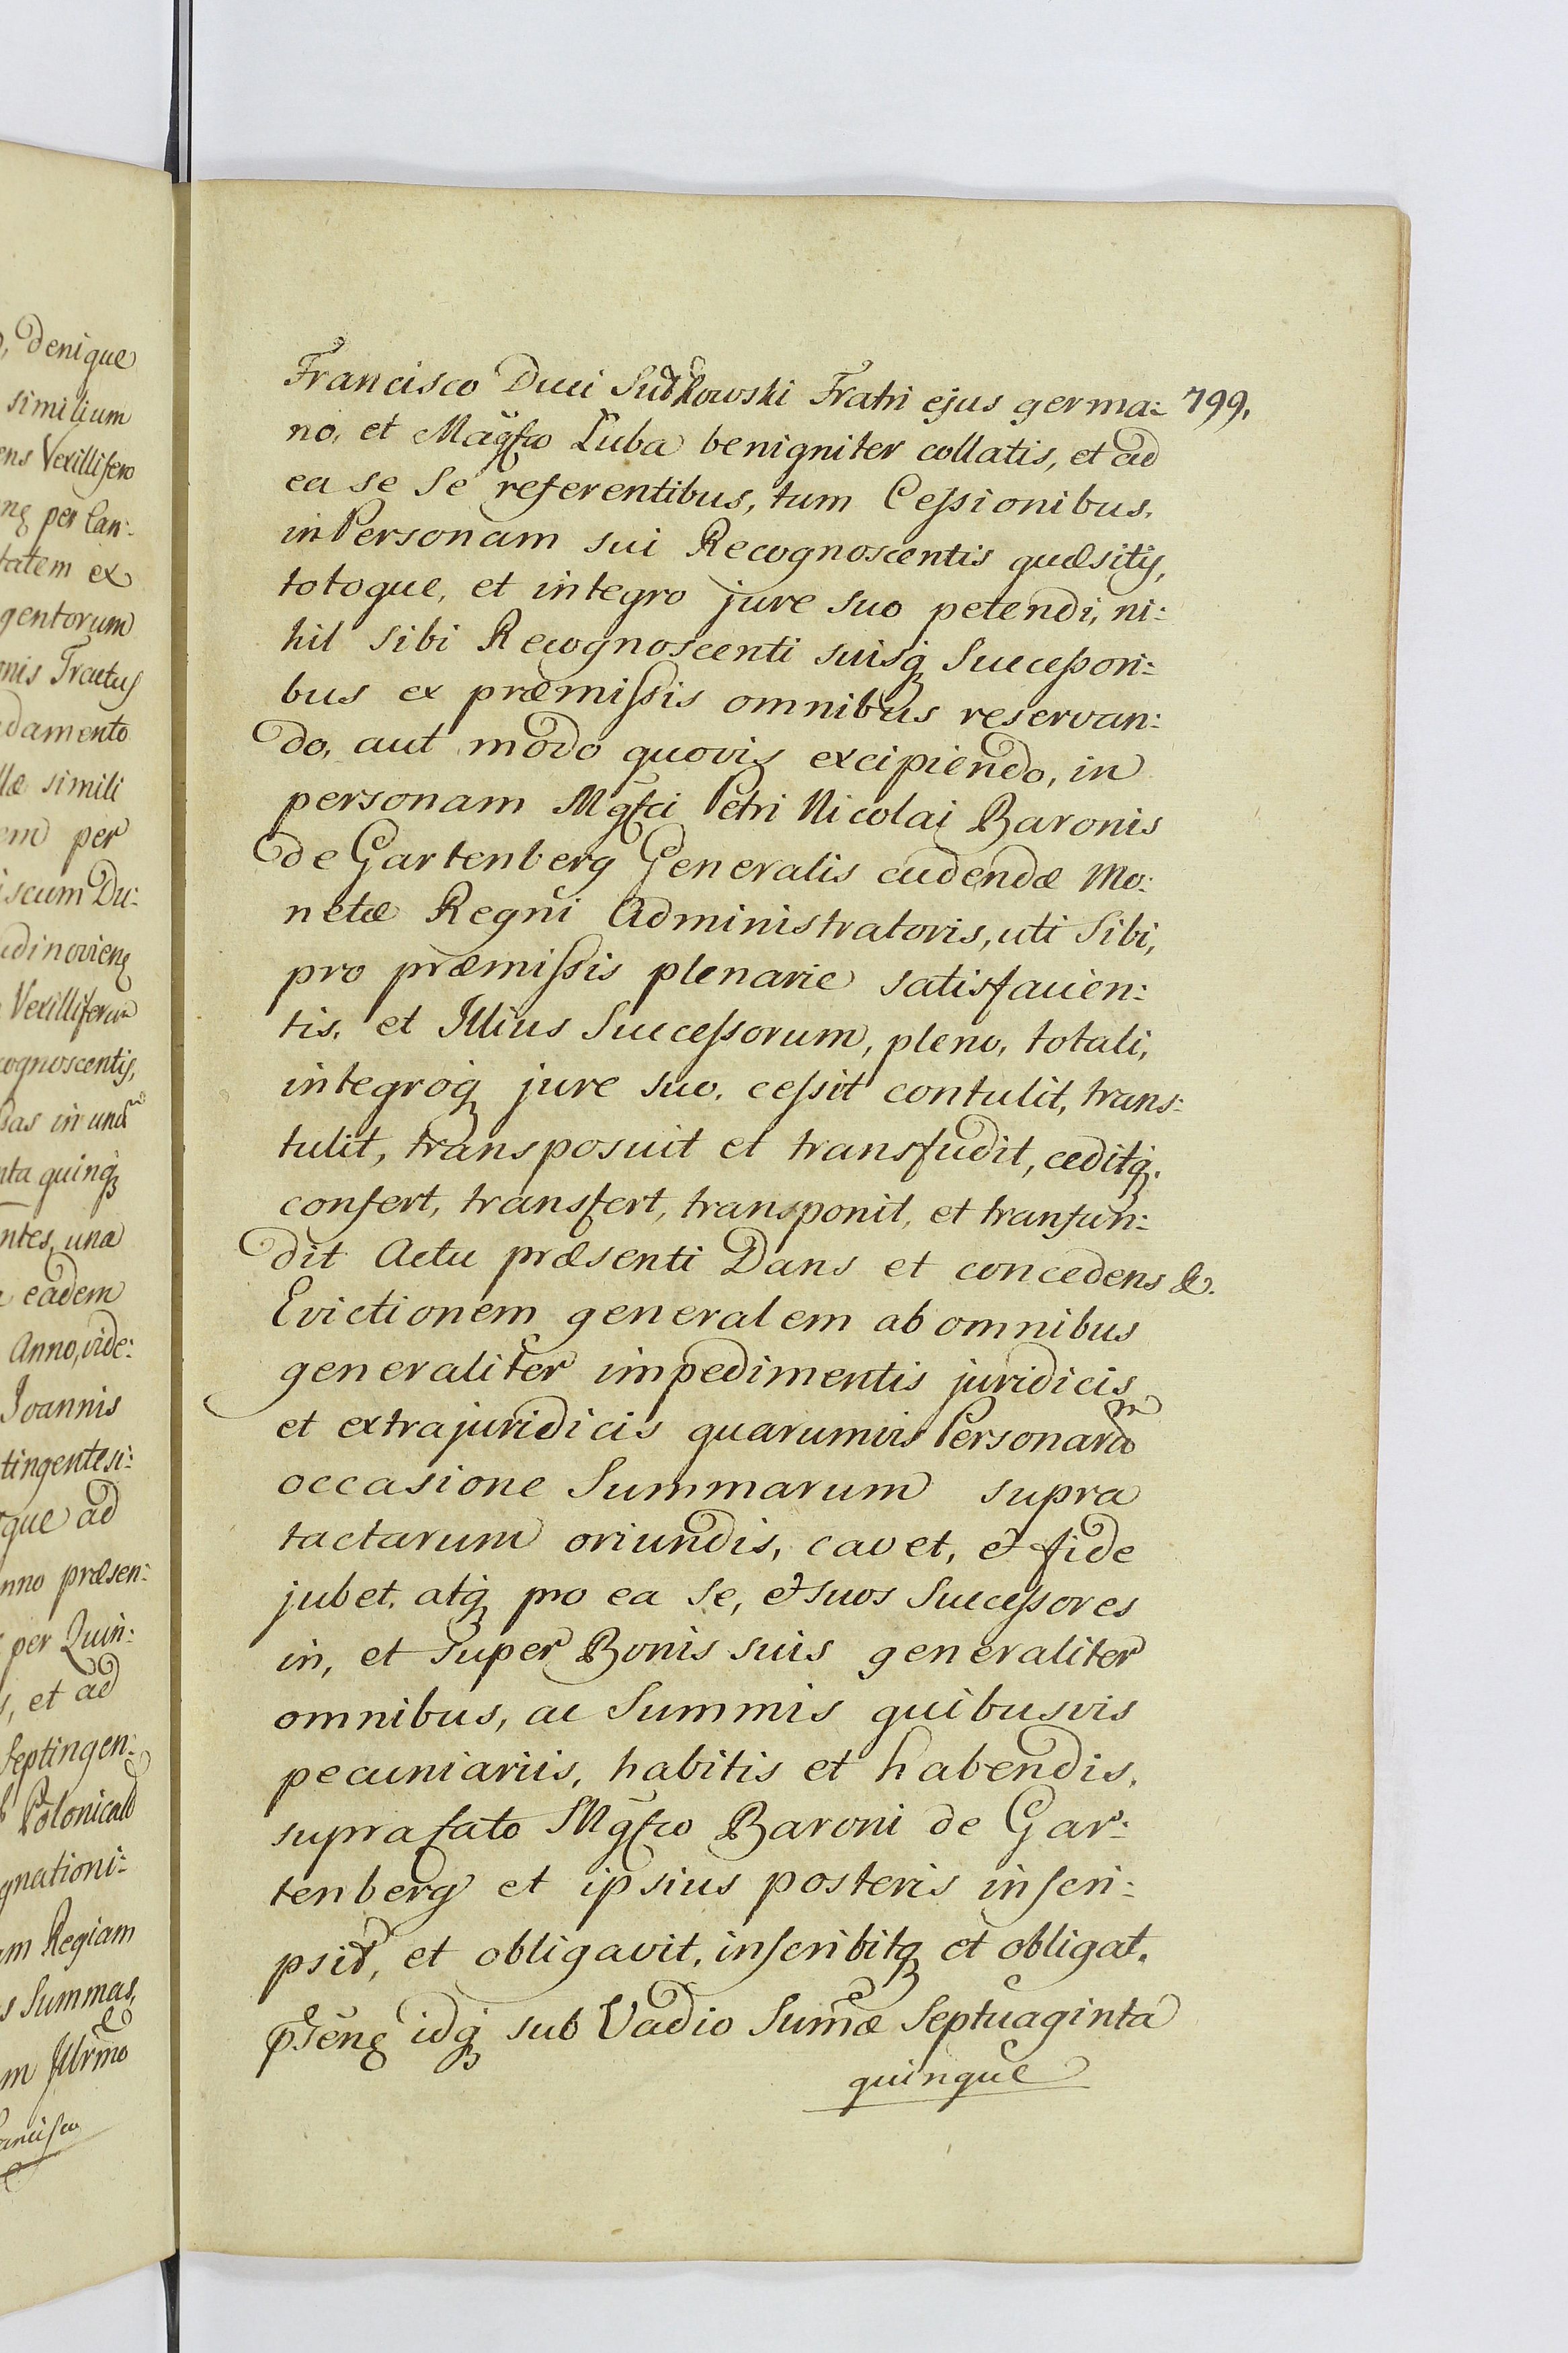 , denique
similium
ens Vexillifero
per Can:
tatem ex
gentorum
onis Tractus
damento
simili
em per
iscum Du:
Vexilliferum
cognoscentis,
das in una
nta quinq
ntes, una
eadem
Anno, vide:
Joannis
tingentesi:
que ad
nno præsen:
per Quin:
, et ad
septingen:
Polonicali
gnationi:
am Regiam
s Summas,
m Illrmo
Francisco Duci Sudkowski Fratri ejus germa: 799.
no, et Magfco Luba benigniter collatis, et ad
ea se se referentibus, tum Cessionibus,
in Personam sui Recognoscentis quæsitis,
totoque, et integro jure suo petendi, ni:
hil sibi Recognoscenti suisq Successori:
bus ex præmissis omnibus reservan:
do, aut modo quovis excipiendo, in
personam Mgfci Petri Nicolai Baronis
de Gartenberg Generalis cudendæ Mo:
netæ Regni Administratoris, uti sibi,
pro præmissis plenarie satisfacien:
tis, et Illius Successorum, pleno, totali,
integroq jure suo, cessit contulit, trans:
tulit, transposuit et transfudit, ceditq.
confert, transfert, transponit, et transfun:
dit Actu præsenti Dans et concedens &.
Evictionem generalem ab omnibus
generaliter impedimentis juridicis
et extrajuridicis quarumvis Personarum
occasione Summarum supra
tactarum oriundis, cavet, et fide
jubet, atq pro ea se, et suos Successores
in, et super Bonis suis generaliter
omnibus, ac Summis quibusvis
pecuniariis, habitis et habendis,
suprafato Mgfco Baroni de Gar:
tenberg et ipsius posteris inscri:
psit, et obligavit, inscribitq et obligat,
idq sub Vadio Sumæ Septuaginta
quinque